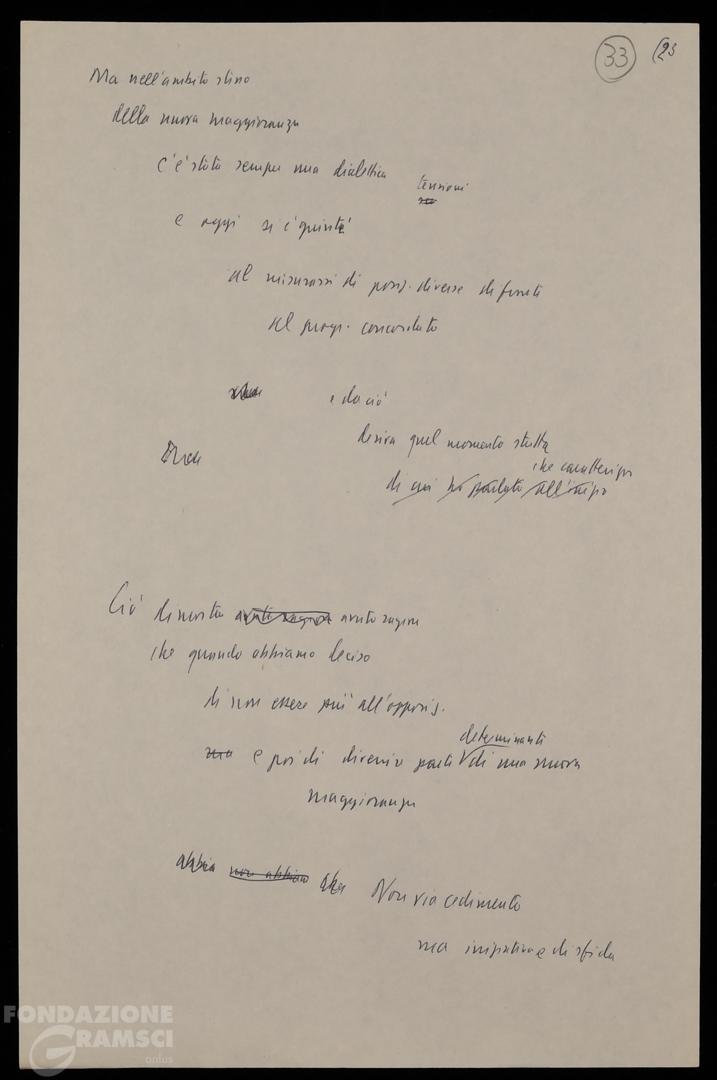 33 (23
Ma nell'ambito stesso
della nuova maggioranza
c'è stata sempre una dialettica
tensioni
e oggi si è giunti
al misurarsi di posiz. diverse di fronte
al progr. concordato
e da ciò
deriva quel momento stretta
che caratterizza
di cui ho parlato all'inizio
Ciò dimostra avuto ragione avuto ragione
che quando abbiamo deciso
di non essere più all'opposiz.
ma e poi di divenire parte di una nuova
determinanti
maggioranza
abbia non abbiamo
Non via cedimento
ma iniziativa e di sfida
FONDAZIONE
GRAMSCI
onlus